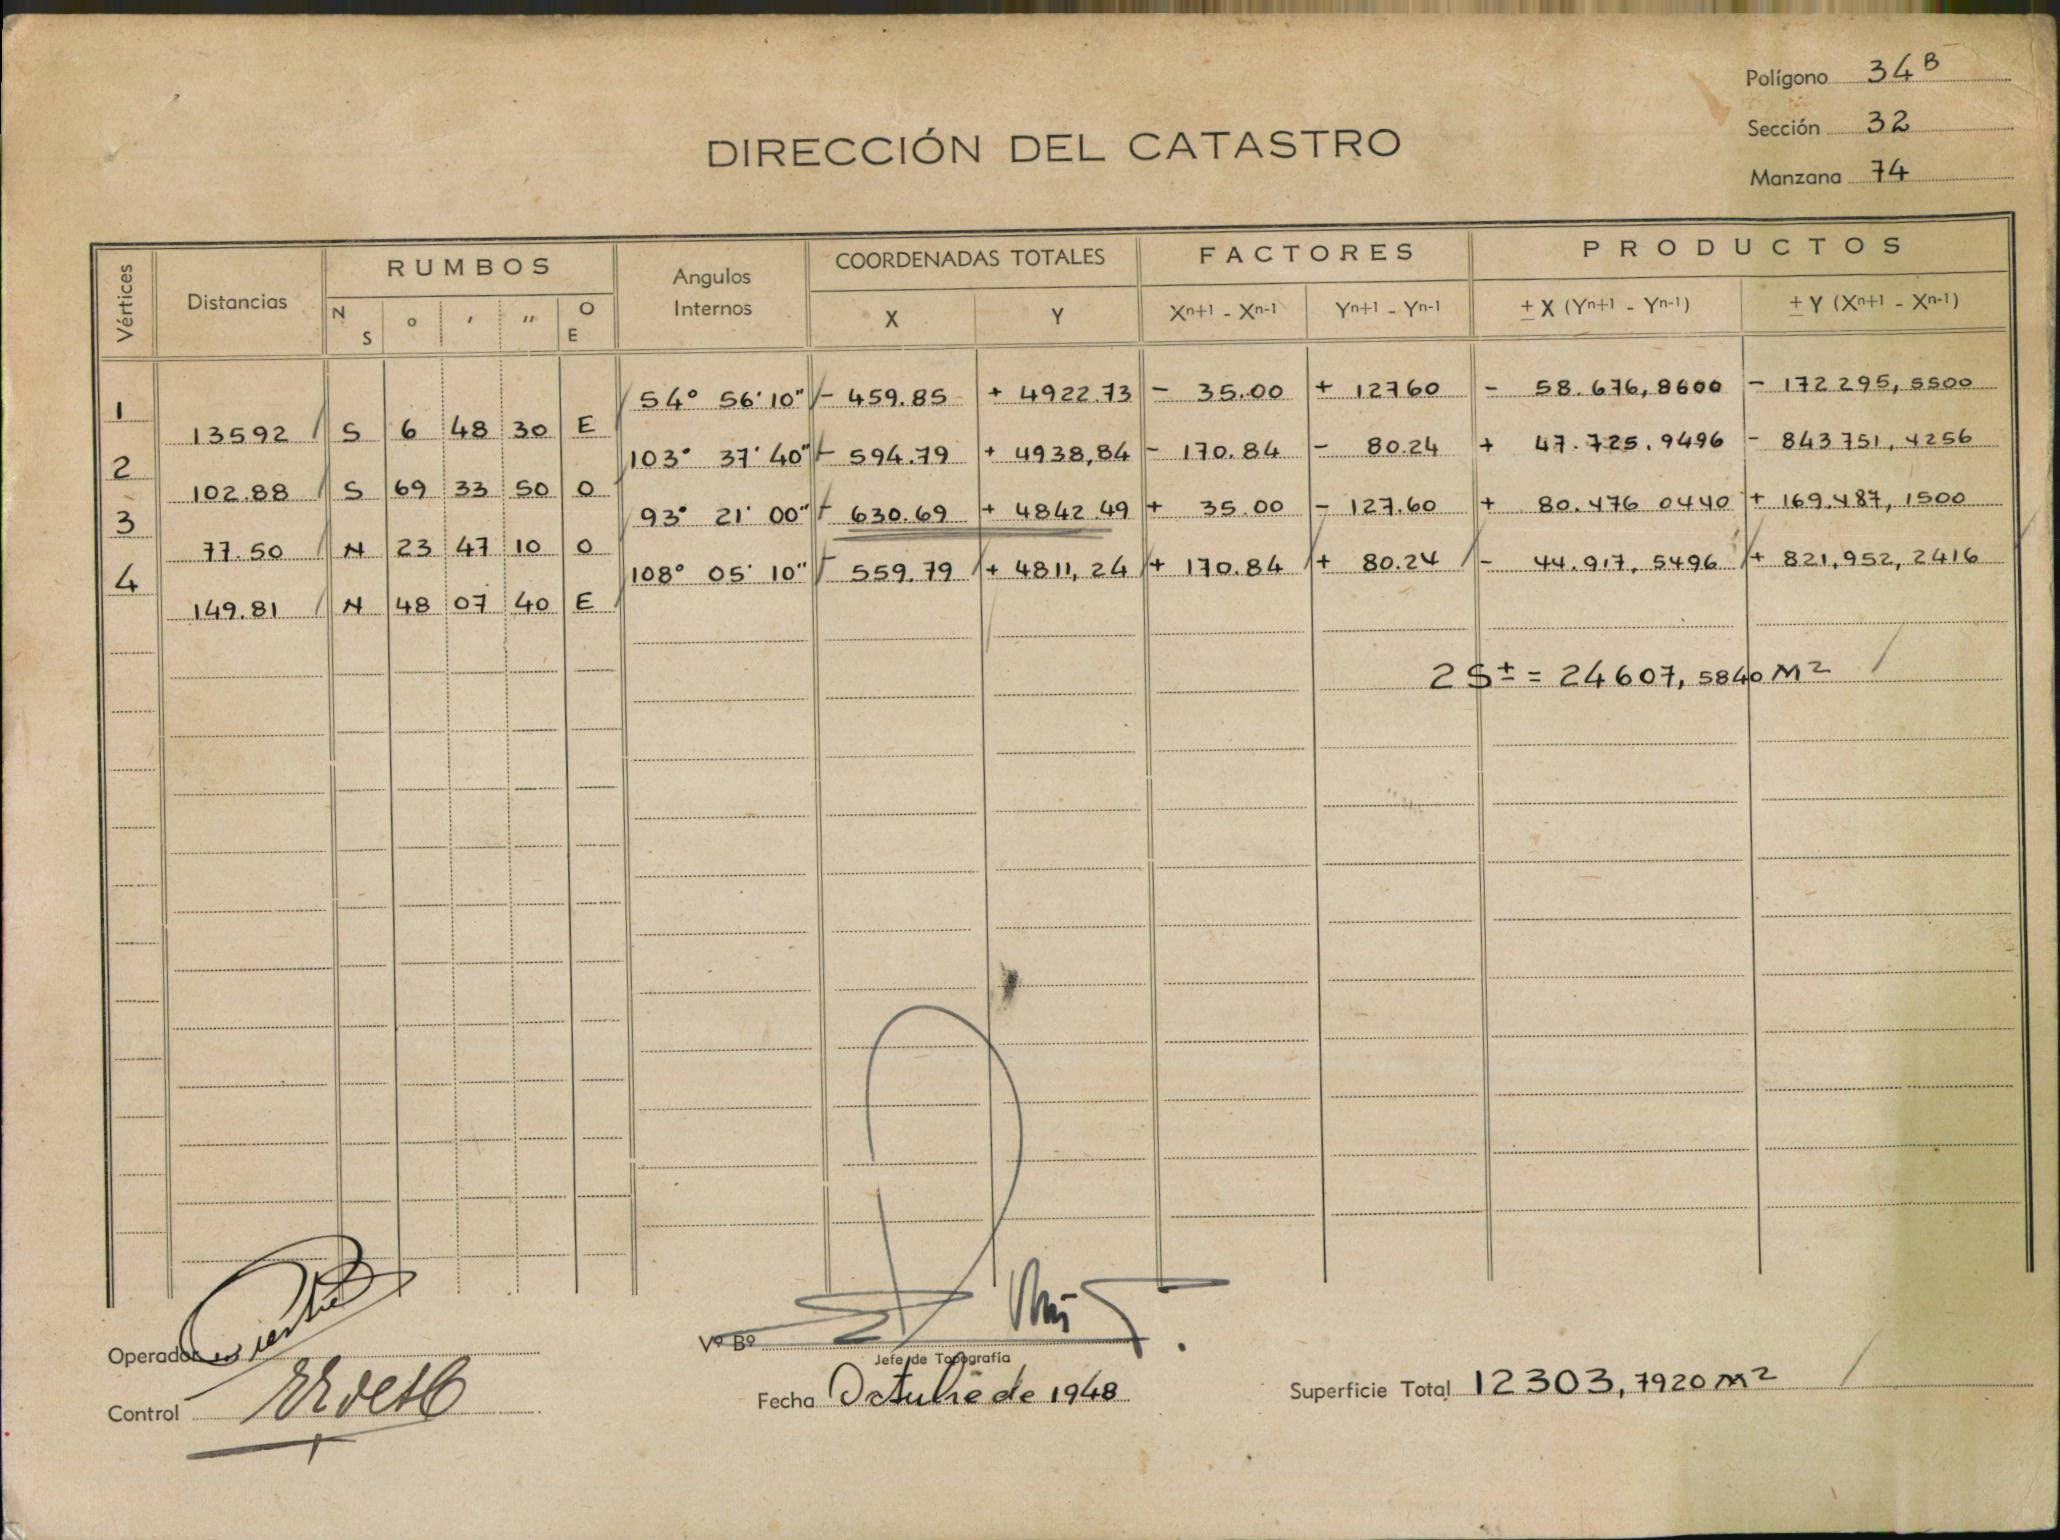 Polígono 34 B
Sección 32
Manzana 74
DIRECCIÓN DEL CATASTRO
Vértices Distancias RUMBOS Angulos Internos COORDENADAS TOTALES FACTORES PRODUCTOS
N S ° ' " O E X Y Xn+1 - Xn-1 Yn+1 - Yn-1 ± X (Yn+1 - Yn-1) ± Y (Xn+1 - Xn-1)
1 54° 56' 10" - 459.85 + 4922.73 - 35.00 + 12760 - 58.676,8600 - 172 295,5500
13592 S 6 48 30 E
2 103° 37' 40" - 594.79 + 4938,84 - 170.84 - 80.24 + 47.725.9496 - 843 751,4256
102.88 S 69 33 50 O
3 93° 21' 00" - 630.69 + 4842.49 + 35.00 - 127.60 + 80.476 0440 + 169.487,1500
77.50 N 23 47 10 O
4 108° 05' 10" - 559.79 + 4811,24 + 170.84 + 80.24 - 44.917,5496 + 821,952,2416
149.81 N 48 07 40 E
2 S ± = 24607,5840 M2
Operador
Control
Vº Bº
Jefe de Topografía
Fecha Octubre de 1948
Superficie Total 12303,7920 M2